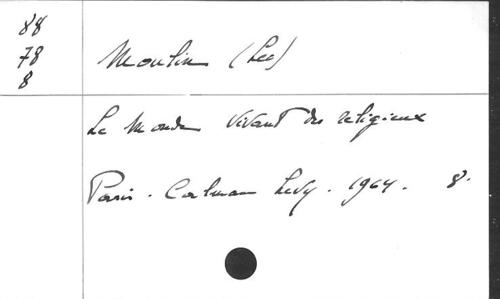 88
78
8
Moulin (Leo)
Le Monde vivant des religieux
Paris. Calman Levy. 1964. 8.